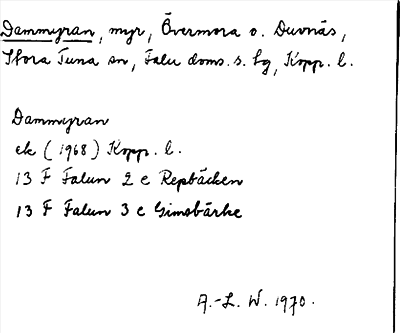 Dammyran, myr, Övermora o. Duvnäs,
Stora Tuna sn, Falu doms. s. lg, Kopp. l.
Dammyran
ek (1968) Kopp. l.
13 F Falun 2 c Repbäcken
13 F Falun 3 c Gimsbärke
A.-L. W. 1970.